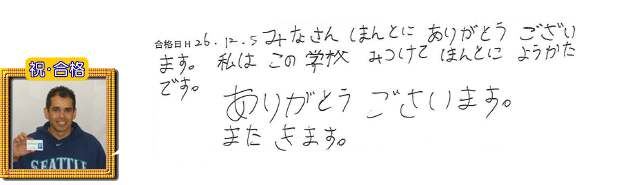 合格日H26.12.5 みなさん ほんとに ありがとう ござい
ます。 私は この 学校 みつけて ほんとに ようかた
です。
ありがとう ございます。
また きます。
祝・合格
SEATTLE